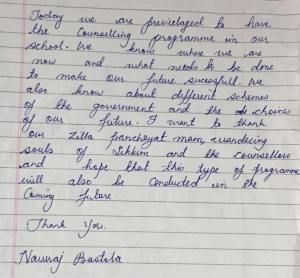 Today we are previelaged to have
the Counselling programme in our
school. We know where we are
now and what needs to be done
to make our future sucessfull. We
also know about different schemes
of the government and the choices
of our future. I want to thank
our Zilla Panchayat mam, wandering
souls of Sikkim and the counsellors
and hope that this type of programme
will also be conducted in the
Coming future
Thank You.
Nawraj Bastola